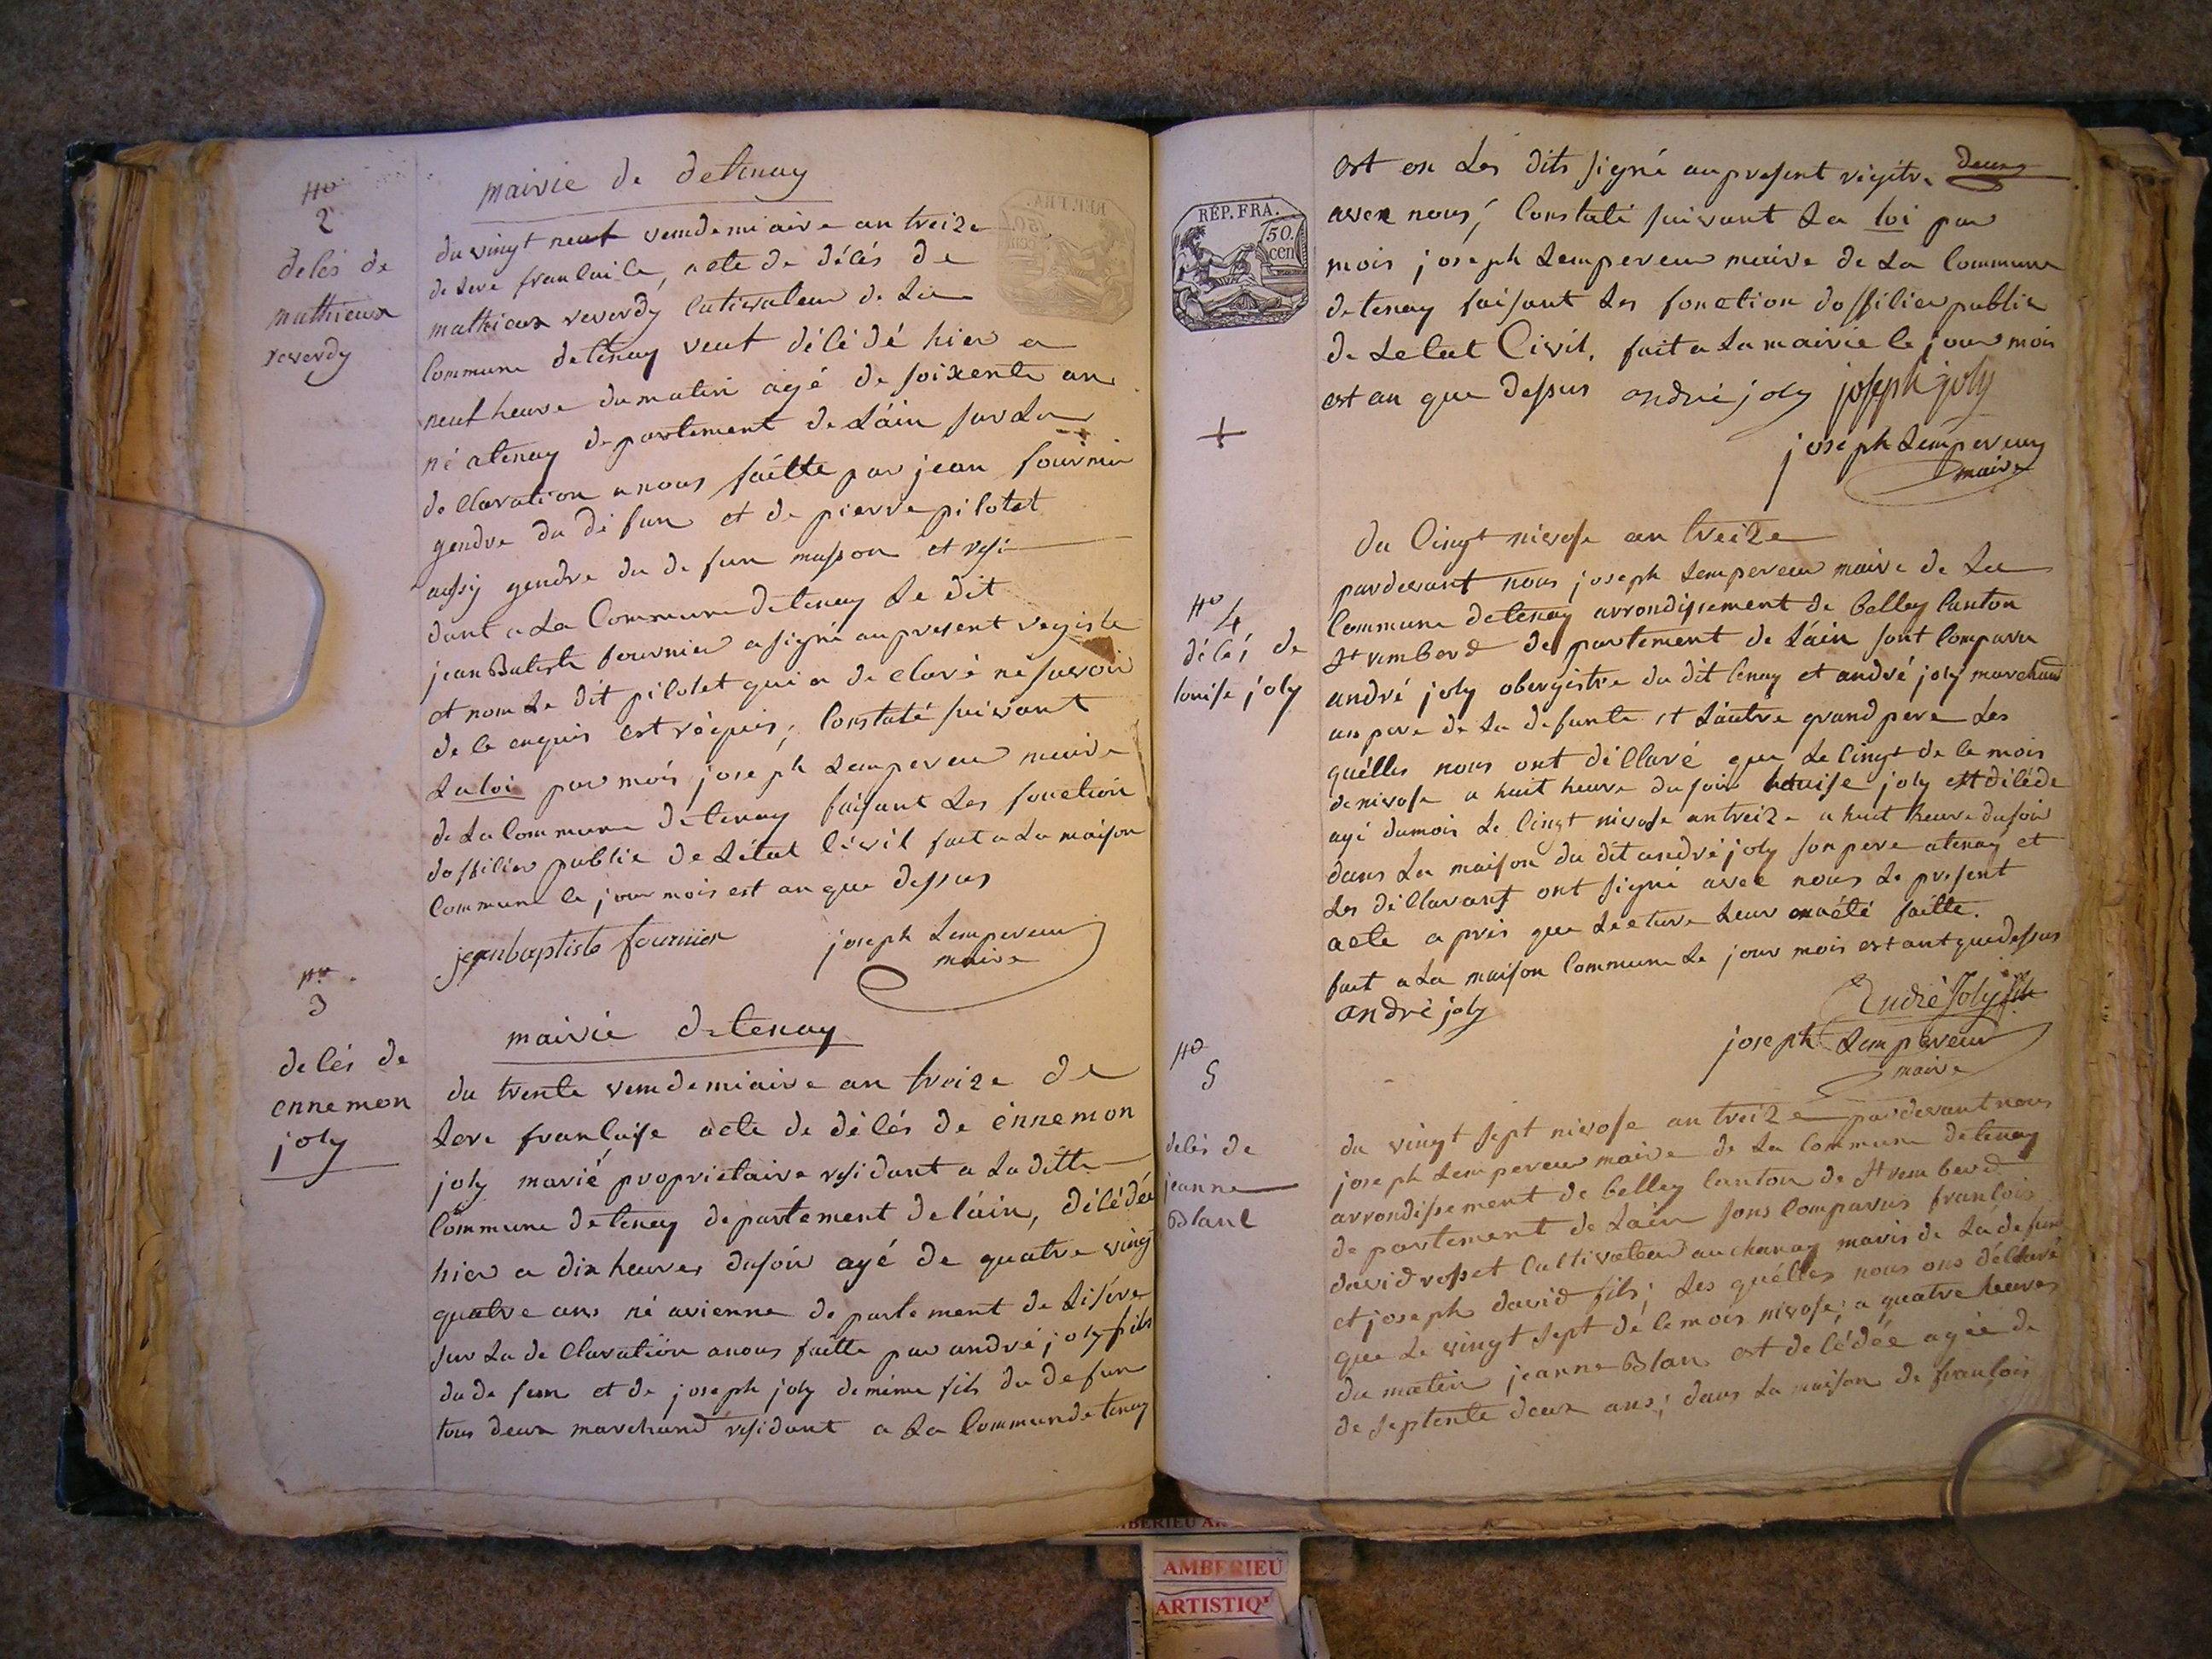 no
2
delés de
mathieux
reverdy
mairie de detenay
du vingt neuf vemdemiaire an treize
de lere franlaile, acte de délés de
mathieux reverdy cutivateur de la
Commune detenay veuf délédé hier a
neuf heure du matin agé de soixente an
né atenay departement de Láin sur La
declaration a nous faitte par jean fournier
gendre du défun et de pierre pilotet
aussy gendre du defun masson et resi
dant a La Commune detenay Le dit
jean Batiste fournier a signé au present registe
et nom Le dit pilotet qui a declaré né savoir
de le enquis est réquis; Constaté suivant
La loi par mois joseph Lempereur maire
de La Commune detenay faisant Les fonction
dofficier public de Létat Civil fait a La maison
Commune le jour mois est an que dessus
jeanbaptiste fournier joseph Lempereur
maire
no
3
delés de
ennemon
joly
mairie detenay
du trente vemdemiaire an treize de
Lere franlaise acte de délés de énnemon
joly marié propriétaire residant a La ditte
Commune detenay departement de láin, délédée
hier a dix heures dusoir agé de quatre ving
quatre ans né avienne departement de Lisére
sur La declaration anous faitte par andré joly fils
du defun et de joseph joly de même fils du defun
tous deux marchand residant a La Commun de tenay
REP. FRA.
50.
cen
est on Les dits signé au present regitre deux
avex nous; Constaté suivant La loi par
mois joseph Lempereur maire de La Commune
detenay faisant Les fonction dofficier public
de Letat Civil. fait a La mairie le jour mois
est an que dessus andré joly joseph joly
joseph Lempereur
maire
no
4
délés de
louise joly
du Cinqt nivose an treize
pardevant nous joseph Lempereur maire de La
Commune detenay arrondissement de belley Canton
St remberd departement de Láin sont Comparu
andré joly obergistre du dit tenay et andré joly marchand
un pere de La defunte et Láutre grand pere Les
quélles nous ont déClaré que Le Cinqt de le mois
de nivose a huit heure du soir Louise joly est délédé
agé dumois Le Cinqt nivose an treize a huit heure dusoir
dans La maison du dit andré joly son pere atenay et
Les déClarant ont signé avec nous Le present
acte aprés que Lecture Leur ona été faitte.
fait a La maison Commune Le jour mois est ant que dessus
andré joly André Joly fils
joseph Lempereur
maire
no
5
delés de
jeanne
Blanc
du vingt sept nivose an treize pardevant nous
joseph Lempereur maire de La Commune detenay
arrondissement de belley Canton de St remberd
departement de Láin sons Comparus franlois
david rosset Cultivateur au chanay maris de La defun
et joseph david fils; Les quélles nous ons déClaré
que Le vingt sept de le mois nivose; a quatre heures
du matin jeanne Blan est delédée agée de
de septente deux ans; dans La maison de franlois
AMBERIEU
ARTISTIQ